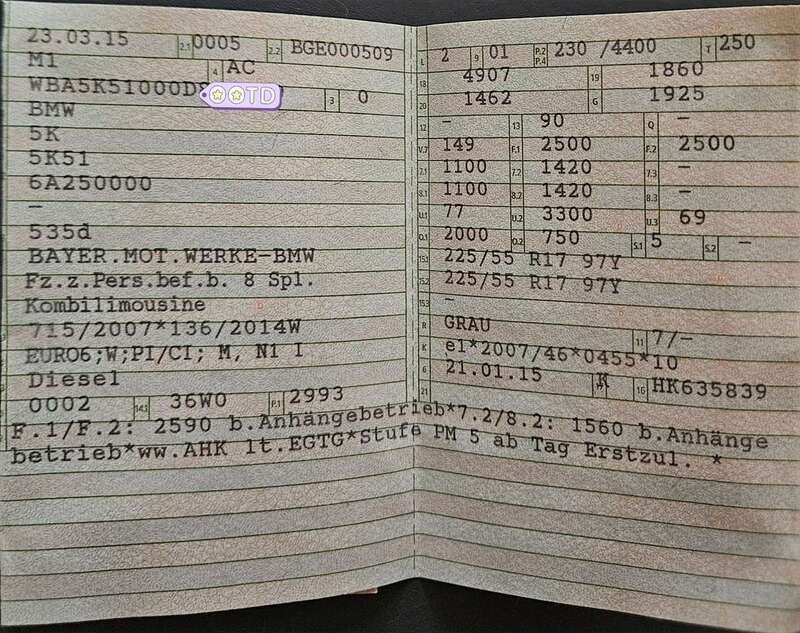 23.03.15 2.1 0005 2.2 BGE000509
M1 4 AC
WBA5K51000D OOTD 3 0
BMW
5K
5K51
6A250000
–
535d
BAYER.MOT.WERKE-BMW
Fz.z.Pers.bef.b. 8 Spl.
Kombilimousine
715/2007*136/2014W
EURO6;W;PI/CI; M, N1 I
Diesel
0002 14.1 36W0 P.1 2993
L 2 9 01 P.2 P.4 230 /4400 T 250
18 4907 19 1860
20 1462 G 1925
12 – 13 90 Q –
V.7 149 F.1 2500 F.2 2500
7.1 1100 7.2 1420 7.3 –
8.1 1100 8.2 1420 8.3 –
U.1 77 U.2 3300 U.3 69
O.1 2000 O.2 750 S.1 5 S.2 –
15.1 225/55 R17 97Y
15.2 225/55 R17 97Y
15.3 –
R GRAU 11 7/–
K e1*2007/46*0455*10
6 21.01.15 K 16 HK635839
21
F.1/F.2: 2590 b.Anhängebetrieb*7.2/8.2: 1560 b.Anhänge
betrieb*ww.AHK lt.EGTG*Stufe PM 5 ab Tag Erstzul. *